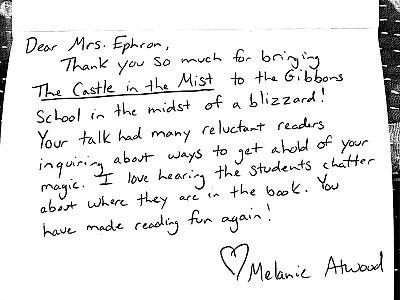 Dear Mrs. Ephron,
Thank you so much for bringing
The Castle in the Mist to the Gibbons
School in the midst of a blizzard!
Your talk had many reluctant readers
inquiring about ways to get ahold of your
magic. I love hearing the students chatter
about where they are in the book. You
have made reading fun again!
♡ Melanie Atwood